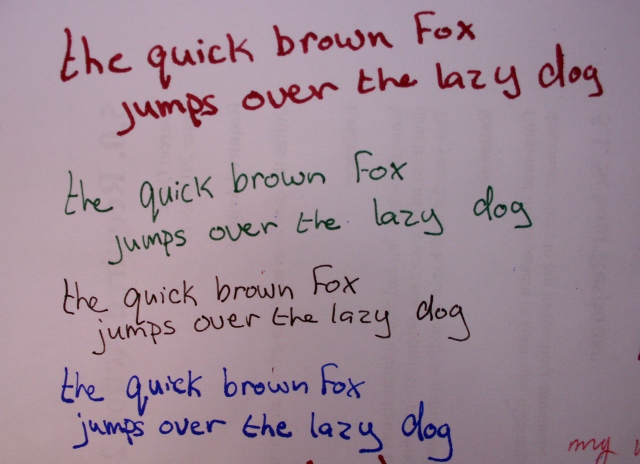 the quick brown Fox
jumps over the lazy dog
the quick brown Fox
jumps over the lazy dog
the quick brown Fox
jumps over the lazy dog
the quick brown Fox
jumps over the lazy dog
my